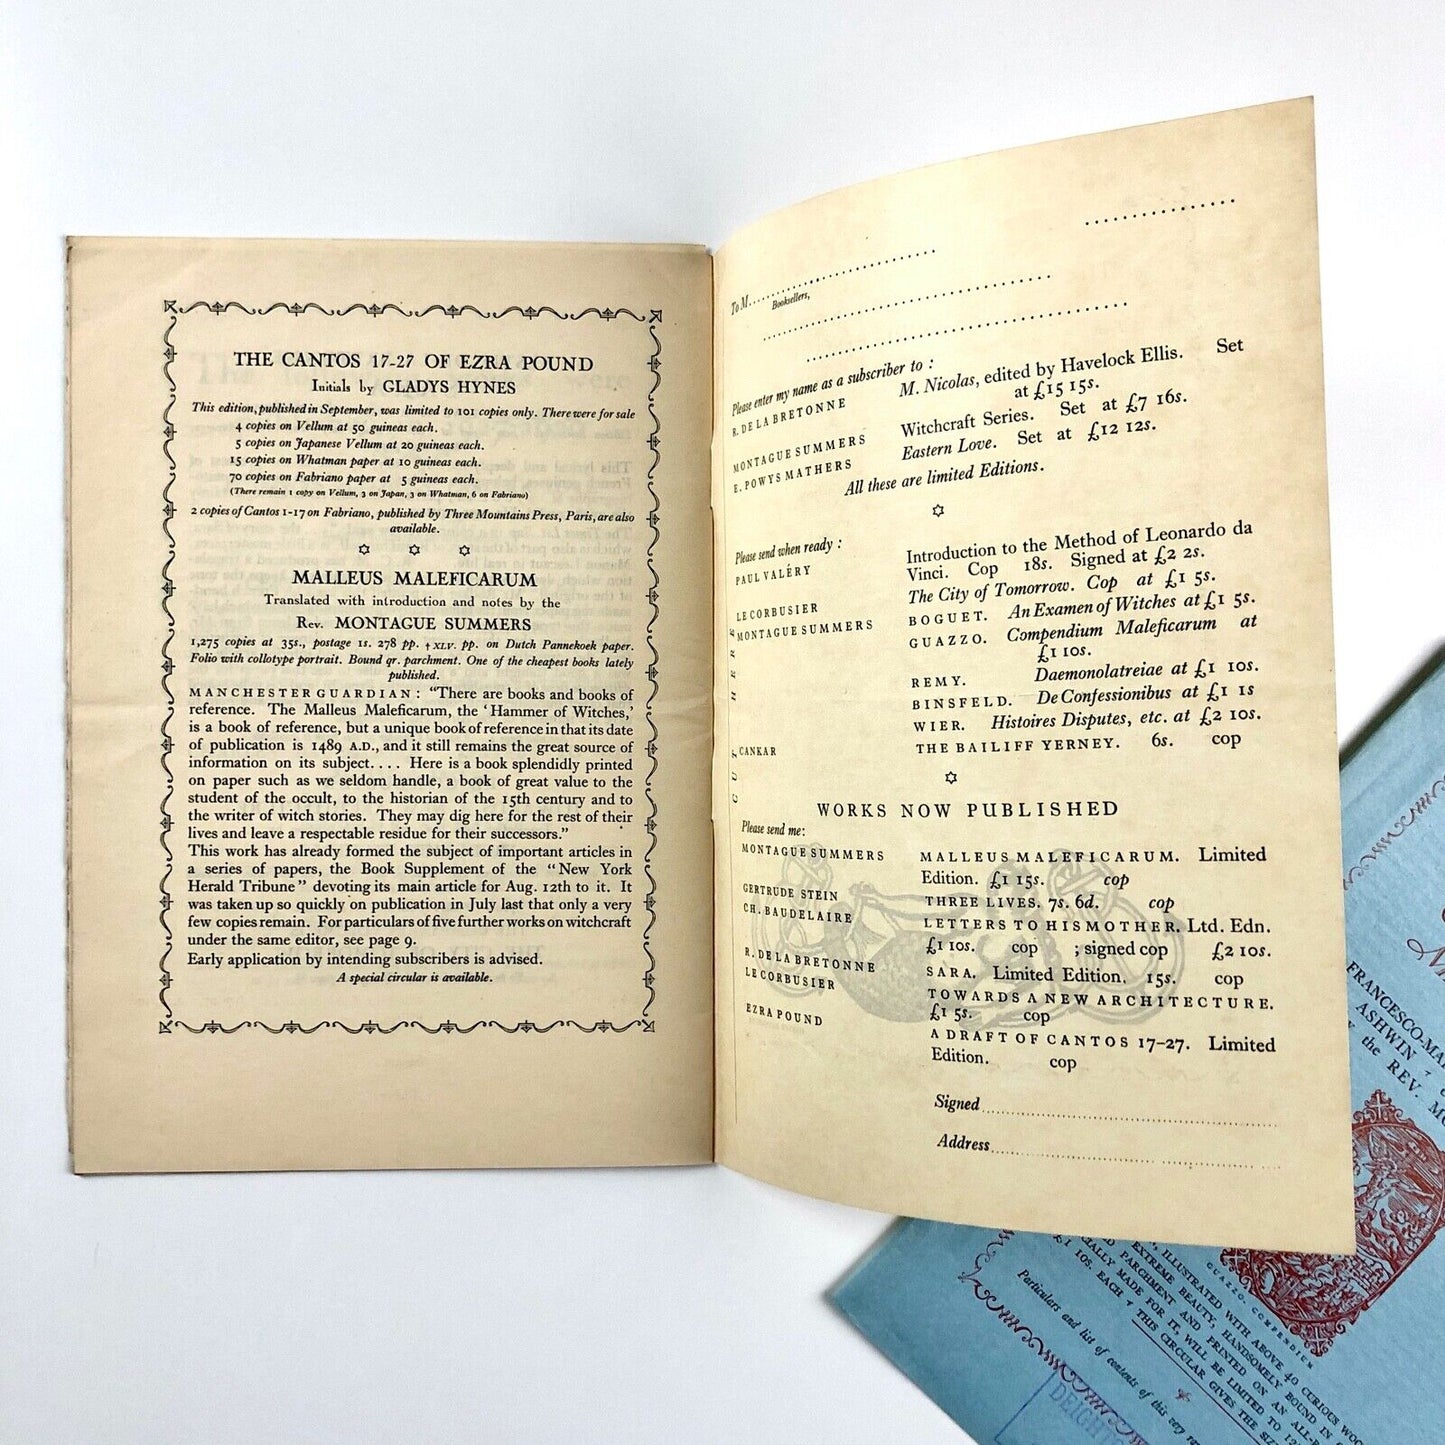 THE CANTOS 17-27 OF EZRA POUND
Initials by GLADYS HYNES
This edition, published in September, was limited to 101 copies only. There were for sale
4 copies on Vellum at 50 guineas each.
5 copies on Japanese Vellum at 20 guineas each.
15 copies on Whatman paper at 10 guineas each.
70 copies on Fabriano paper at 5 guineas each.
(There remain 1 copy on Vellum, 3 on Japan, 3 on Whatman, 6 on Fabriano)
2 copies of Cantos 1-17 on Fabriano, published by Three Mountains Press, Paris, are also
available.
MALLEUS MALEFICARUM
Translated with introduction and notes by the
Rev. MONTAGUE SUMMERS
1,275 copies at 35s., postage 1s. 278 pp. † XLV. pp. on Dutch Pannekoek paper.
Folio with collotype portrait. Bound qr. parchment. One of the cheapest books lately
published.
MANCHESTER GUARDIAN: "There are books and books of
reference. The Malleus Maleficarum, the 'Hammer of Witches,'
is a book of reference, but a unique book of reference in that its date
of publication is 1489 A.D., and it still remains the great source of
information on its subject.... Here is a book splendidly printed
on paper such as we seldom handle, a book of great value to the
student of the occult, to the historian of the 15th century and to
the writer of witch stories. They may dig here for the rest of their
lives and leave a respectable residue for their successors."
This work has already formed the subject of important articles in
a series of papers, the Book Supplement of the "New York
Herald Tribune" devoting its main article for Aug. 12th to it. It
was taken up so quickly on publication in July last that only a very
few copies remain. For particulars of five further works on witchcraft
under the same editor, see page 9.
Early application by intending subscribers is advised.
A special circular is available.
To M.
Booksellers,
Please enter my name as a subscriber to :
R. DE LA BRETONNE M. Nicolas, edited by Havelock Ellis. Set
at £15 15s.
MONTAGUE SUMMERS Witchcraft Series. Set at £7 16s.
E. POWYS MATHERS Eastern Love. Set at £12 12s.
All these are limited Editions.
Please send when ready :
PAUL VALÉRY Introduction to the Method of Leonardo da
Vinci. Cop 18s. Signed at £2 2s.
LE CORBUSIER The City of Tomorrow. Cop at £1 5s.
MONTAGUE SUMMERS BOGUET. An Examen of Witches at £1 5s.
GUAZZO. Compendium Maleficarum at
£1 10s.
REMY. Daemonolatreiae at £1 10s.
BINSFELD. De Confessionibus at £1 1s
WIER. Histoires Disputes, etc. at £2 10s.
CANKAR THE BAILIFF YERNEY. 6s. cop
CUT HERE
WORKS NOW PUBLISHED
Please send me:
MONTAGUE SUMMERS MALLEUS MALEFICARUM. Limited
Edition. £1 15s. cop
GERTRUDE STEIN THREE LIVES. 7s. 6d. cop
CH. BAUDELAIRE LETTERS TO HIS MOTHER. Ltd. Edn.
£1 10s. cop ; signed cop £2 10s.
R. DE LA BRETONNE SARA. Limited Edition. 15s. cop
LE CORBUSIER TOWARDS A NEW ARCHITECTURE.
£1 5s. cop
EZRA POUND A DRAFT OF CANTOS 17-27. Limited
Edition. cop
Signed
Address
FRANCESCO-MA
ASHWIN
the REV. MO
GUAZZO, COMPENDIUM
ILLUSTRATED WITH ABOVE 40 CURIOUS WOO
EXTREME BEAUTY, HANDSOMELY BOUND IN
PARCHMENT AND PRINTED ON AN ALL-
CIALLY MADE FOR IT, WILL BE LIMITED TO 12
£1 10S. EACH
THIS CIRCULAR GIVES THE SIZ
Particulars and list of contents of this very ra
DEIGHTO